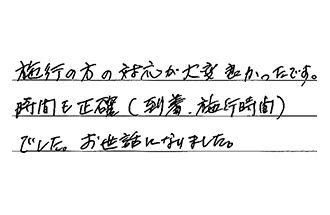 施行の方の対応が大変良かったです。
時間も正確(到着、施行時間)
でした。お世話になりました。